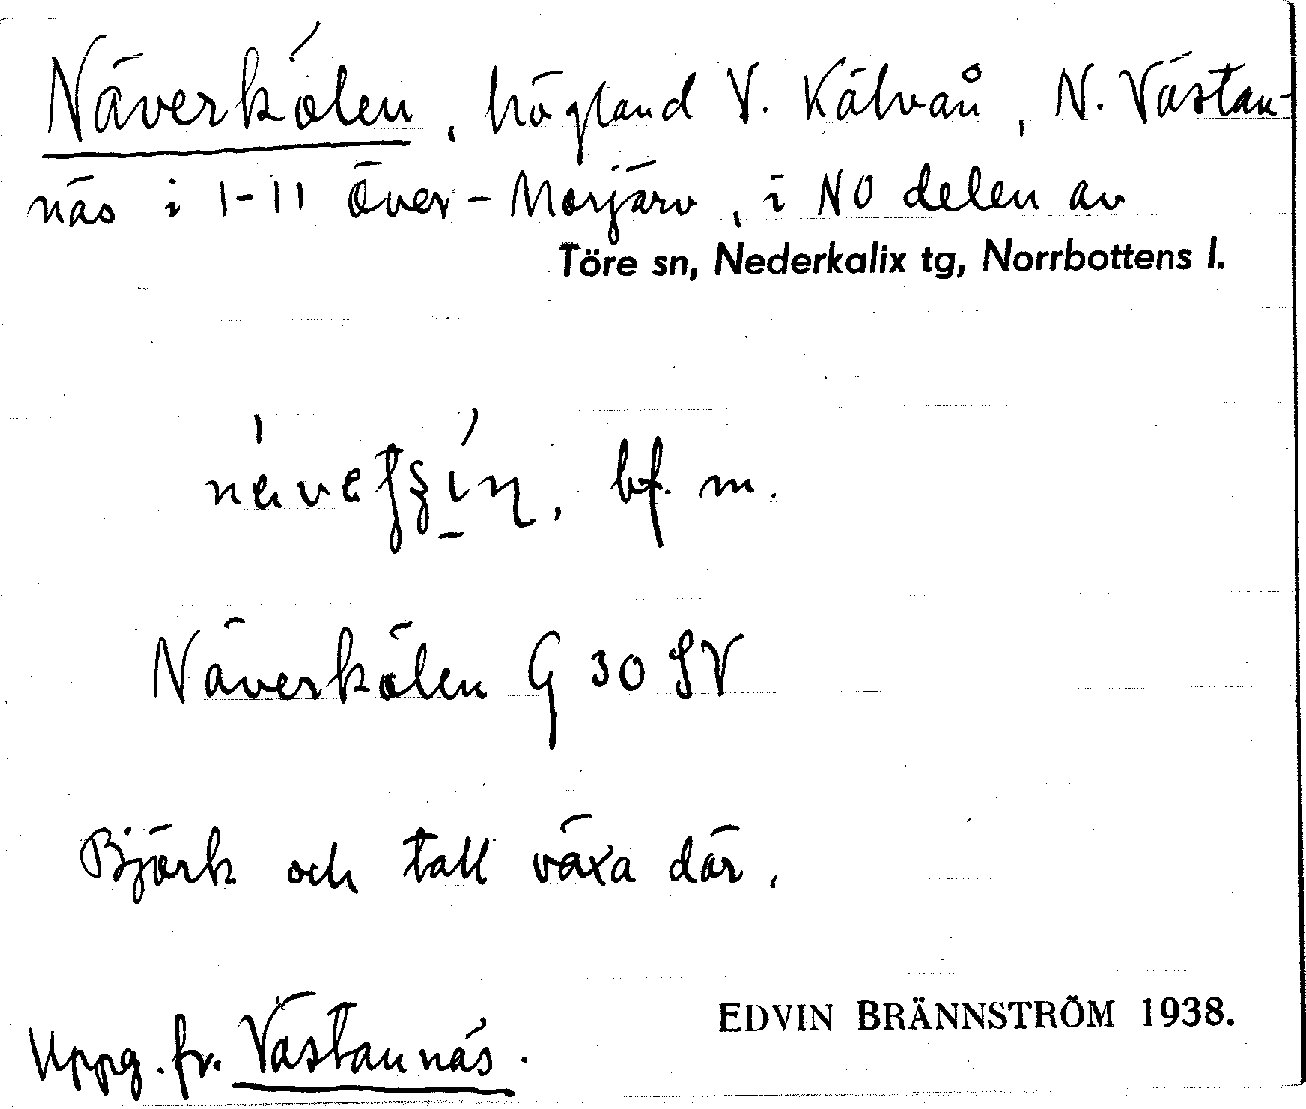 Näverkölen, högland V. Kälvån, N. Västan-
näs i 1-11 Över-Morjärv, i NO delen av
Töre sn, Nederkalix tg, Norrbottens l.
bf. m.
Näverkölen G 30 SV
Björk och tall växa där.
EDVIN BRÄNNSTRÖM 1938.
Uppg. fr. Västannäs.